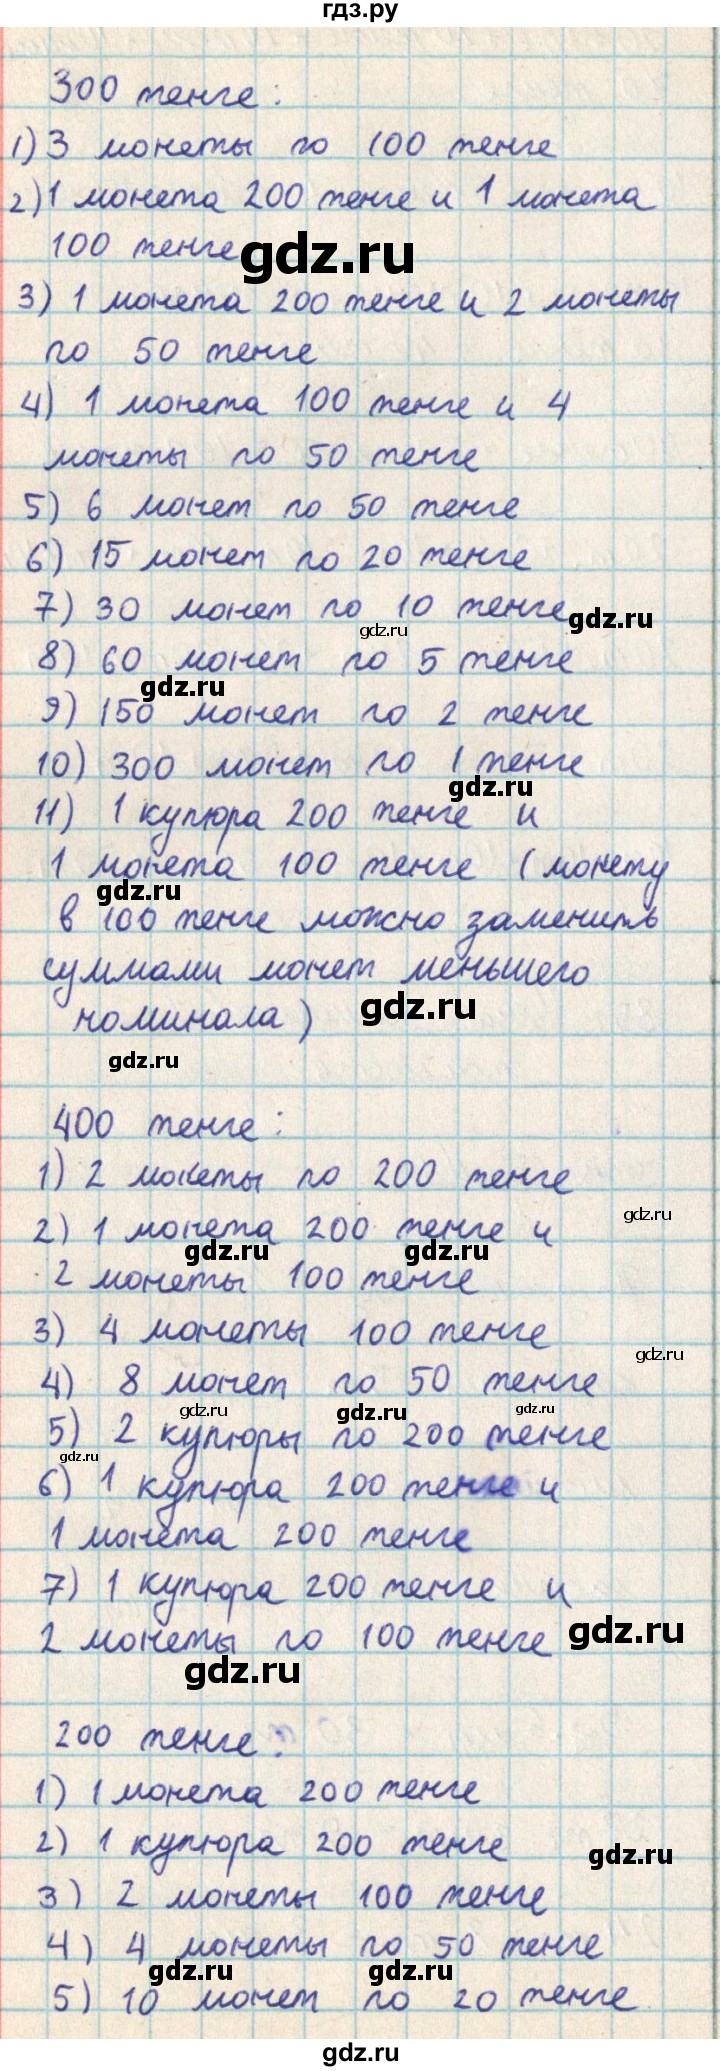 гдз.ру
300 тенге:
1) 3 монеты по 100 тенге
2) 1 монета 200 тенге и 1 монета
100 тенге
gdz.ru
3) 1 монета 200 тенге и 2 монеты
по 50 тенге
4) 1 монета 100 тенге и 4
монеты по 50 тенге
5) 6 монет по 50 тенге
6) 15 монет по 20 тенге
7) 30 монет по 10 тенге
gdz.ru
gdz.ru
8) 60 монет по 5 тенге
gdz.ru
9) 150 монет по 2 тенге
10) 300 монет по 1 тенге
gdz.ru
11) 1 купюра 200 тенге и
1 монета 100 тенге (монету
gdz.ru
в 100 тенге можно заменить
суммами монет меньшего
gdz.ru
номинала)
gdz.ru
400 тенге:
1) 2 монеты по 200 тенге
gdz.ru
2) 1 монета 200 тенге и
gdz.ru gdz.ru
2 монеты 100 тенге
3) 4 монеты 100 тенге
gdz.ru
4) 8 монет по 50 тенге
gdz.ru gdz.ru gdz.ru
5) 2 купюры по 200 тенге
gdz.ru
6) 1 купюра 200 тенге и
1 монета 200 тенге
7) 1 купюра 200 тенге и
2 монеты по 100 тенге
gdz.ru
gdz.ru
200 тенге:
1) 1 монета 200 тенге
2) 1 купюра 200 тенге
gdz.ru
3) 2 монеты 100 тенге
4) 4 монеты по 50 тенге
gdz.ru gdz.ru
5) 10 монет по 20 тенге
gdz.ru